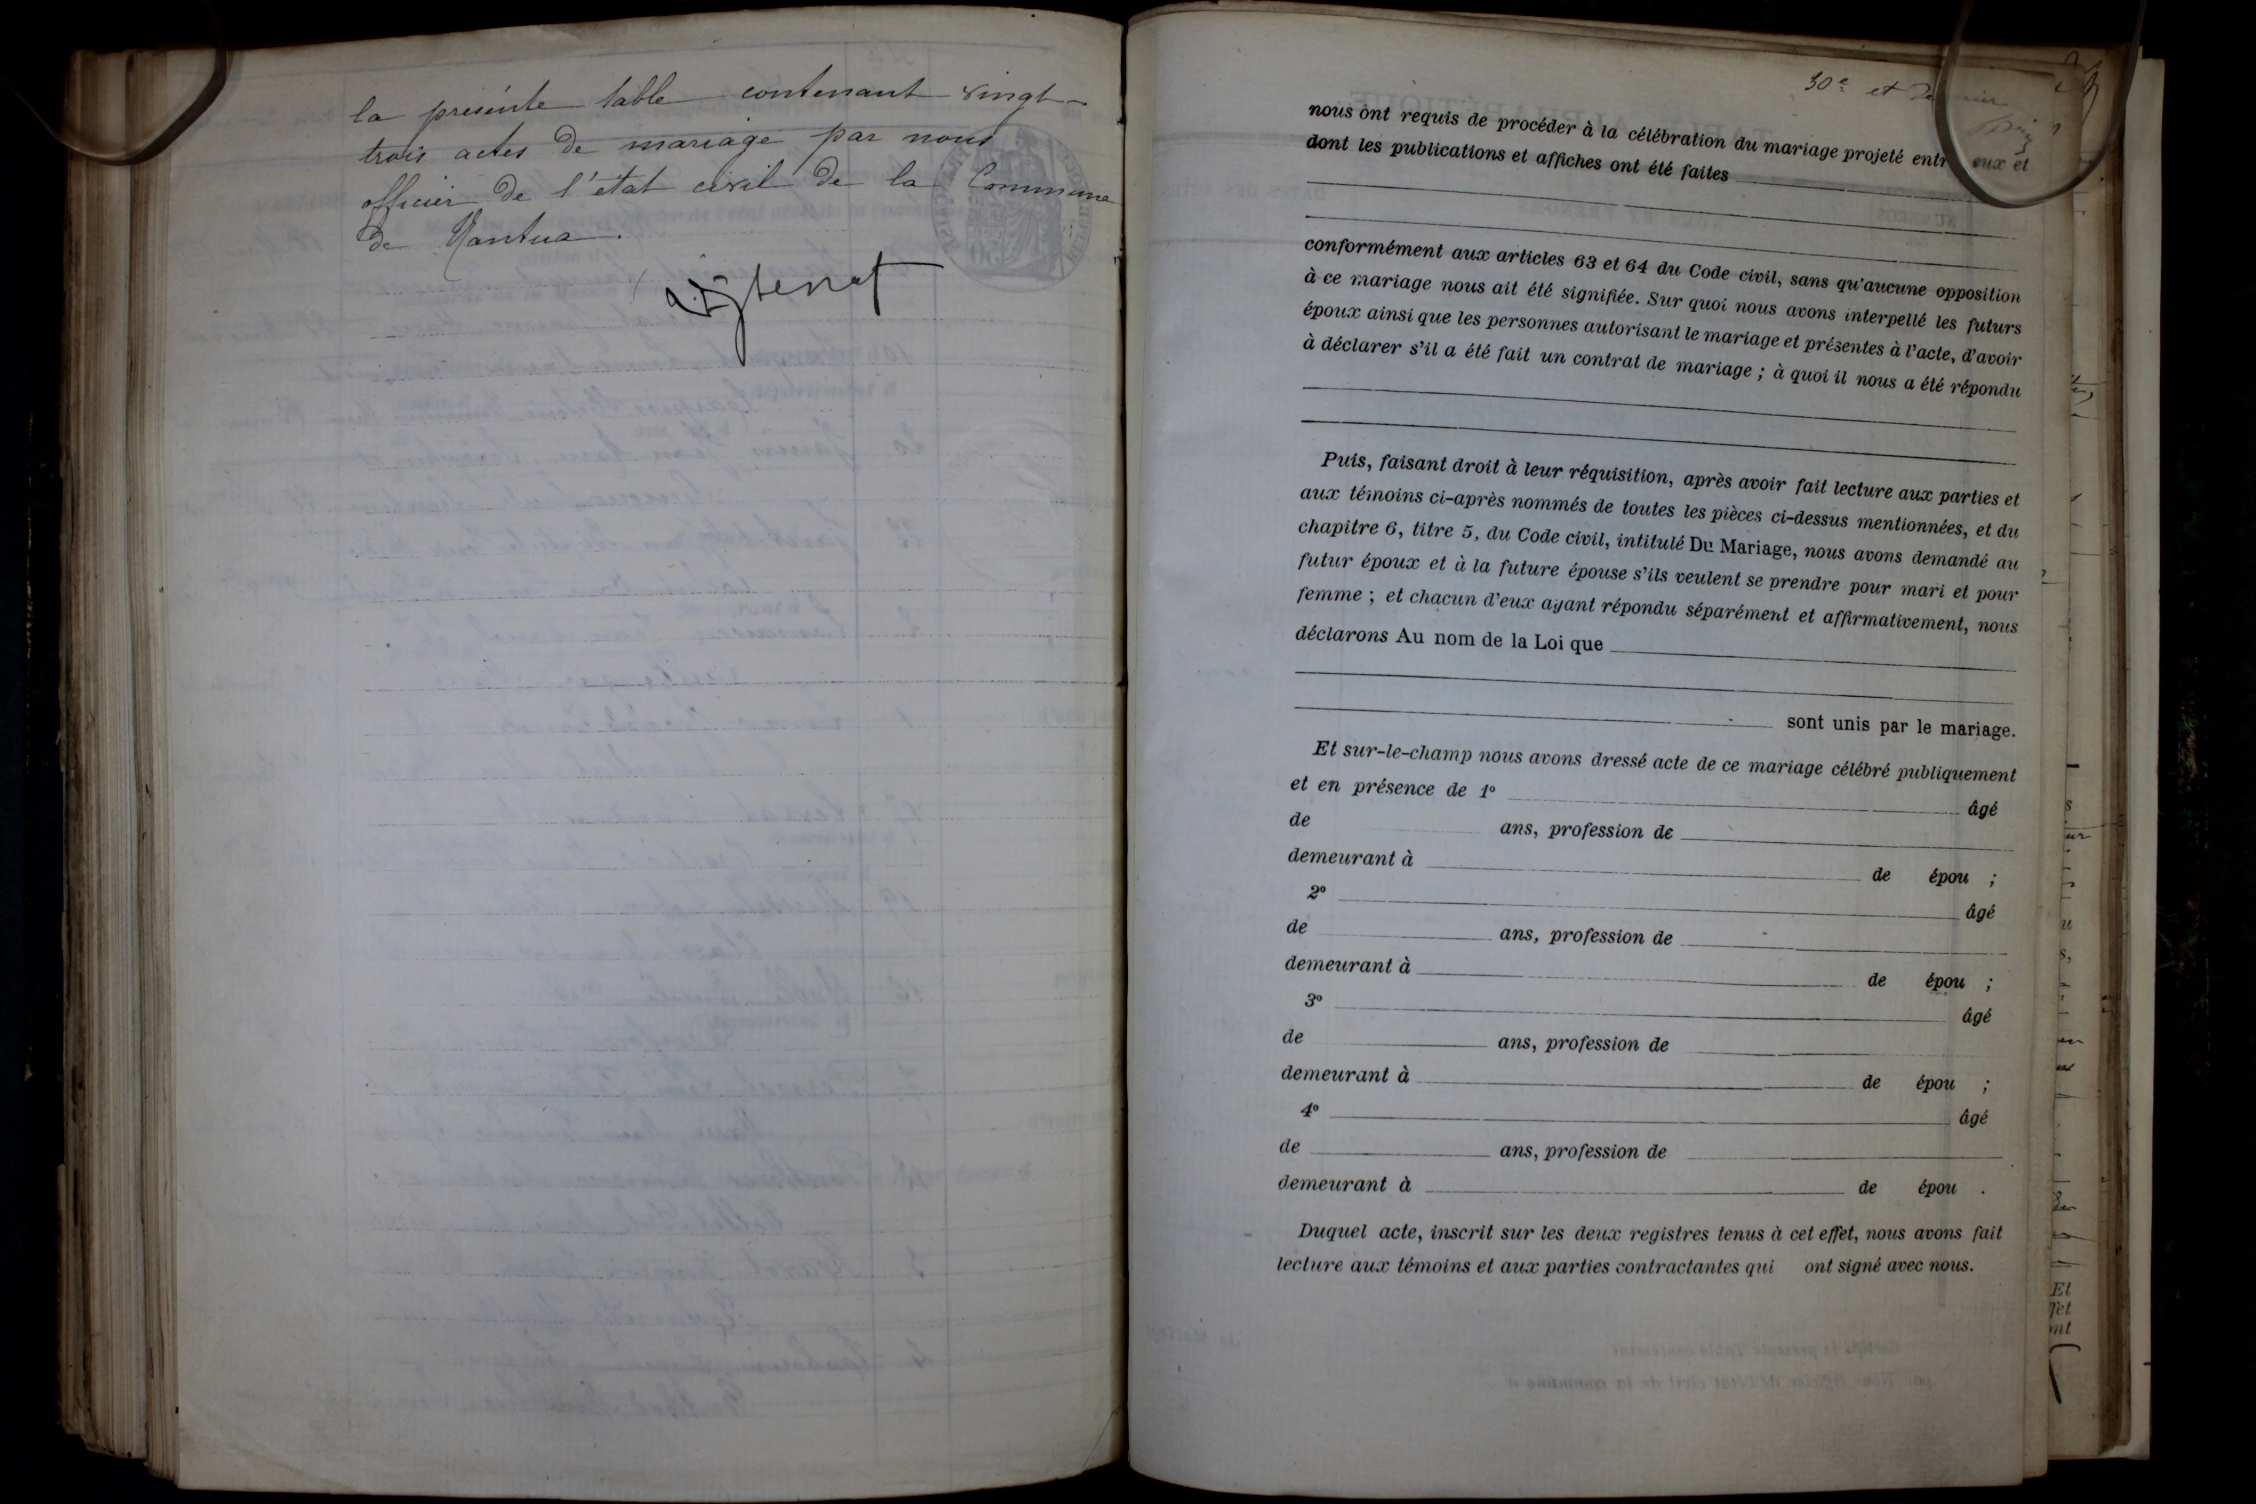 la présente table contenant vingt-
trois actes de mariage par nous
officier de l'état civil de la Commune
de Nantua.
30e et
nous ont requis de procéder à la célébration du mariage projeté entre eux et
dont les publications et affiches ont été faites
conformément aux articles 63 et 64 du Code civil, sans qu'aucune opposition
à ce mariage nous ait été signifiée. Sur quoi nous avons interpellé les futurs
époux ainsi que les personnes autorisant le mariage et présentes à l'acte, d'avoir
à déclarer s'il a été fait un contrat de mariage ; à quoi il nous a été répondu
Puis, faisant droit à leur réquisition, après avoir fait lecture aux parties et
aux témoins ci-après nommés de toutes les pièces ci-dessus mentionnées, et du
chapitre 6, titre 5, du Code civil, intitulé Du Mariage, nous avons demandé au
futur époux et à la future épouse s'ils veulent se prendre pour mari et pour
femme ; et chacun d'eux ayant répondu séparément et affirmativement, nous
déclarons Au nom de la Loi que
sont unis par le mariage.
Et sur-le-champ nous avons dressé acte de ce mariage célébré publiquement
et en présence de 1º âgé
de ans, profession de
demeurant à de épou ;
2º âgé
de ans, profession de
demeurant à de épou ;
3º âgé
de ans, profession de
demeurant à de épou ;
4º âgé
de ans, profession de
demeurant à de épou .
Duquel acte, inscrit sur les deux registres tenus à cet effet, nous avons fait
lecture aux témoins et aux parties contractantes qui ont signé avec nous.